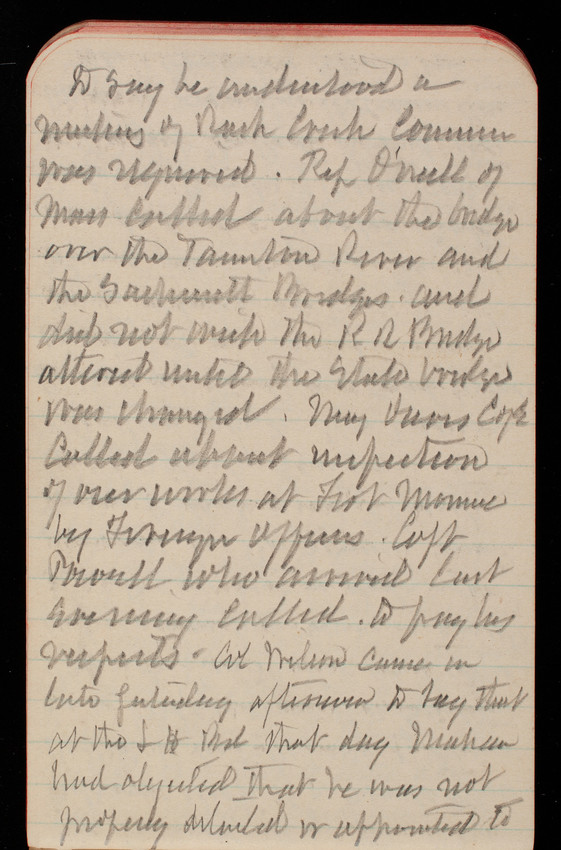 to say he understood a
meeting of Rock Creek Commn
was required. Rep O'neill of
Mass Called about the bridge
over the Taunton River and
the Bridges and
did not wish the R R Bridge
altered until the State bridge
was changed. Maj Davis C of E
Called about inspection
of our works at Fort Monroe
by Foreign Officers. Capt
Powell who arrived last
Evening Called to pay his
respects. Col Wilson came in
late Saturday afternoon to say that
at the L H Bd that day Mahan
had objected that he was not
properly detailed or appointed to